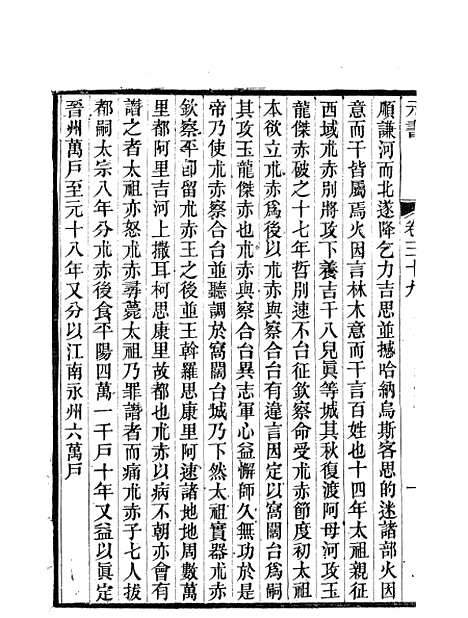 元書　卷三十九　一
順謙河而北遂降乞力吉思並撼哈納烏斯客思的迷諸部火因
意而干皆屬焉火因言林木意而干言百姓也十四年太祖親征
西域朮赤別將攻下養吉干八兒眞等城其秋復渡阿母河攻玉
龍傑赤破之十七年哲別速不台征欽察命受朮赤節度初太祖
本欲立朮赤爲後以朮赤與察合台有違言因定以窩闊台爲嗣
其攻玉龍傑赤也朮赤與察合台異志軍心益懈師久無功於是
帝乃使朮赤察合台並聽調於窩闊台城乃下然太祖實器朮赤
欽察平卽留朮赤王之後並王斡羅思康里阿速諸地地周數萬
里都阿里吉河上撒耳柯思康里故都也朮赤以病不朝亦會有
譖之者太祖亦怒朮赤尋薨太祖乃罪譖者而痛朮赤子七人拔
都嗣太宗八年分朮赤後食平陽四萬一千戶十年又益以眞定
晉州萬戶至元十八年又分以江南永州六萬戶